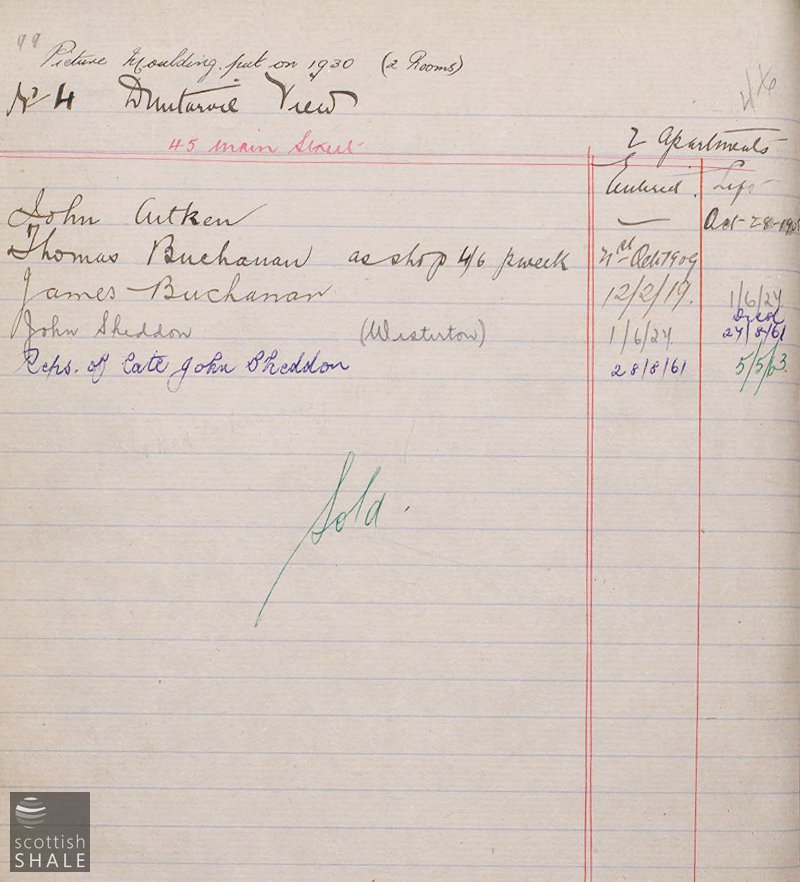 99
Picture Moulding put on 1930 (2 Rooms)
No 4 Duntarvie View
4/6
45 Main Street
2 Apartments
Entered Left
John Aitken — Oct 28-19
Thomas Buchanan as shop 4/6 p week Oct 1909
James Buchanan 12/2/19. 1/6/27
John Sheddon (Westerton) 1/6/27 Died 27/8/61
Reps. of late John Sheddon 28/8/61 5/5/63.
Sold.
scottish
SHALE